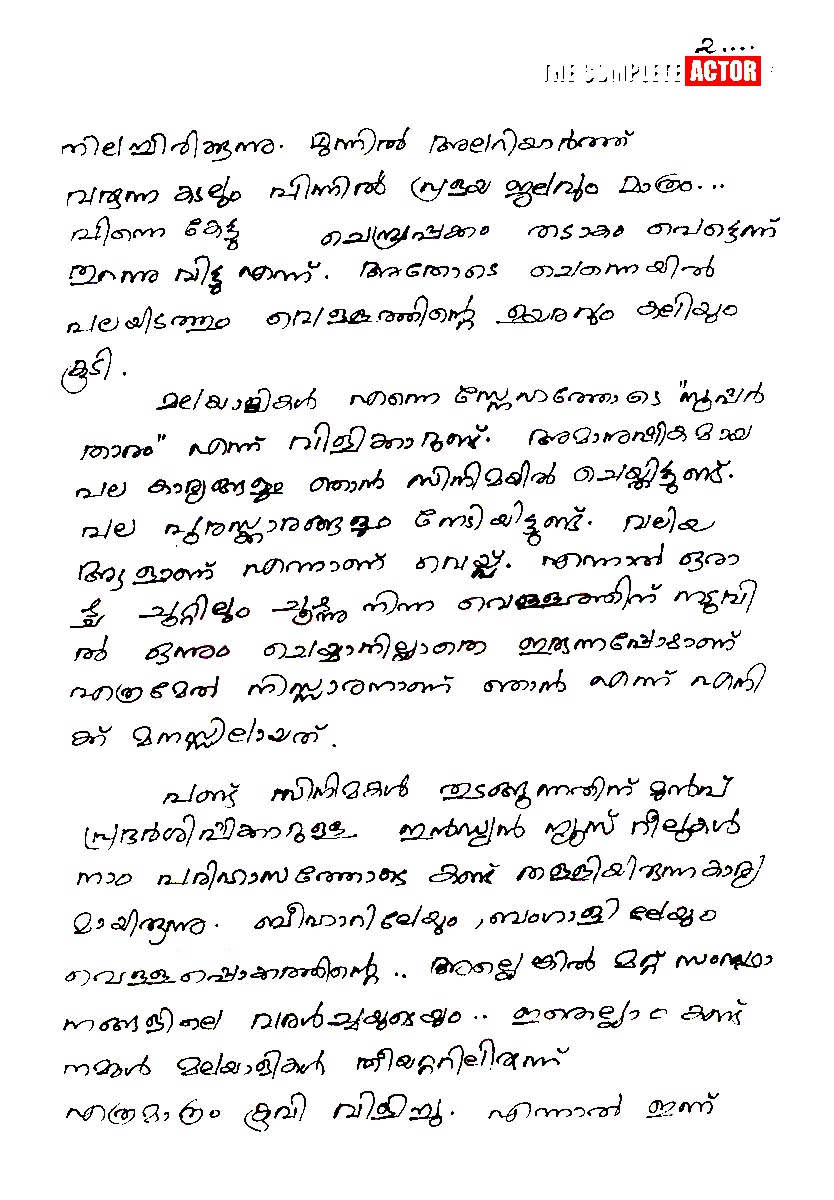 2....
THE COMPLETE ACTOR
നിലച്ചിരിക്കുന്നു. മുന്നിൽ അലറിയാർത്ത്
വരുന്ന കടലും പിന്നിൽ പ്രളയ ജലവും മാത്രം...
പിന്നെ കേട്ടു ചെമ്പ്രപക്കം തടാകം പെട്ടെന്ന്
തുറന്നു വിട്ടു എന്ന്. അതോടെ ചെന്നൈയിൽ
പലയിടത്തും വെള്ളത്തിന്റെ ഉയരവും കലിയും
കൂടി.
മലയാളികൾ എന്നെ സ്നേഹത്തോടെ "സൂപ്പർ
താരം" എന്ന് വിളിക്കാറുണ്ട്. അമാനുഷികമായ
പല കാര്യങ്ങളും ഞാൻ സിനിമയിൽ ചെയ്തിട്ടുണ്ട്.
പല പുരസ്ക്കാരങ്ങളും നേടിയിട്ടുണ്ട്. വലിയ
ആളാണ് എന്നാണ് വെയ്പ്പ്. എന്നാൽ ഒരാ
ഴ്ച്ച ചുറ്റിലും ചൂഴ്ന്നു നിന്ന വെള്ളത്തിന് നടുവി
ൽ ഒന്നും ചെയ്യാനില്ലാതെ ഇരുന്നപ്പോഴാണ്
എത്രമേൽ നിസ്സാരനാണ് ഞാൻ എന്ന് എനി
ക്ക് മനസ്സിലായത്.
പണ്ട് സിനിമകൾ തുടങ്ങുന്നതിന് മുൻപ്
പ്രദർശിപ്പിക്കാറുള്ള ഇൻഡ്യൻ ന്യൂസ് റീലുകൾ
നാം പരിഹാസത്തോടെ കണ്ട് തള്ളിയിരുന്ന കാര്യ
മായിരുന്നു. ബീഹാറിലേയും, ബംഗാളിലേയും
വെള്ളപ്പൊക്കത്തിന്റെ.. അല്ലെങ്കിൽ മറ്റ് സംസ്ഥാ
നങ്ങളിലെ വരൾച്ചയുടെയും.. ഇതെല്ലാം കണ്ട്
നമ്മൾ മലയാളികൾ തീയറ്ററിലിരുന്ന്
എത്രമാത്രം കൂവി വിളിച്ചു. എന്നാൽ ഇന്ന്